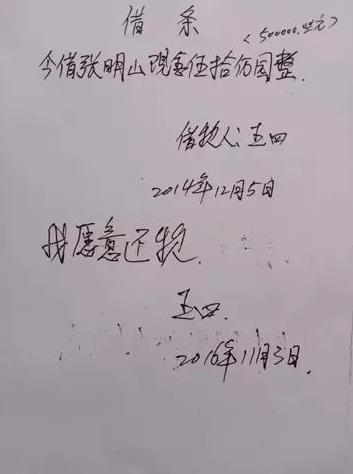 借条
(500000.00元)
今借张明山现金伍拾万圆整.
借款人:王四
2014年12月5日
我愿意还款.
王四.
2016年11月3日.